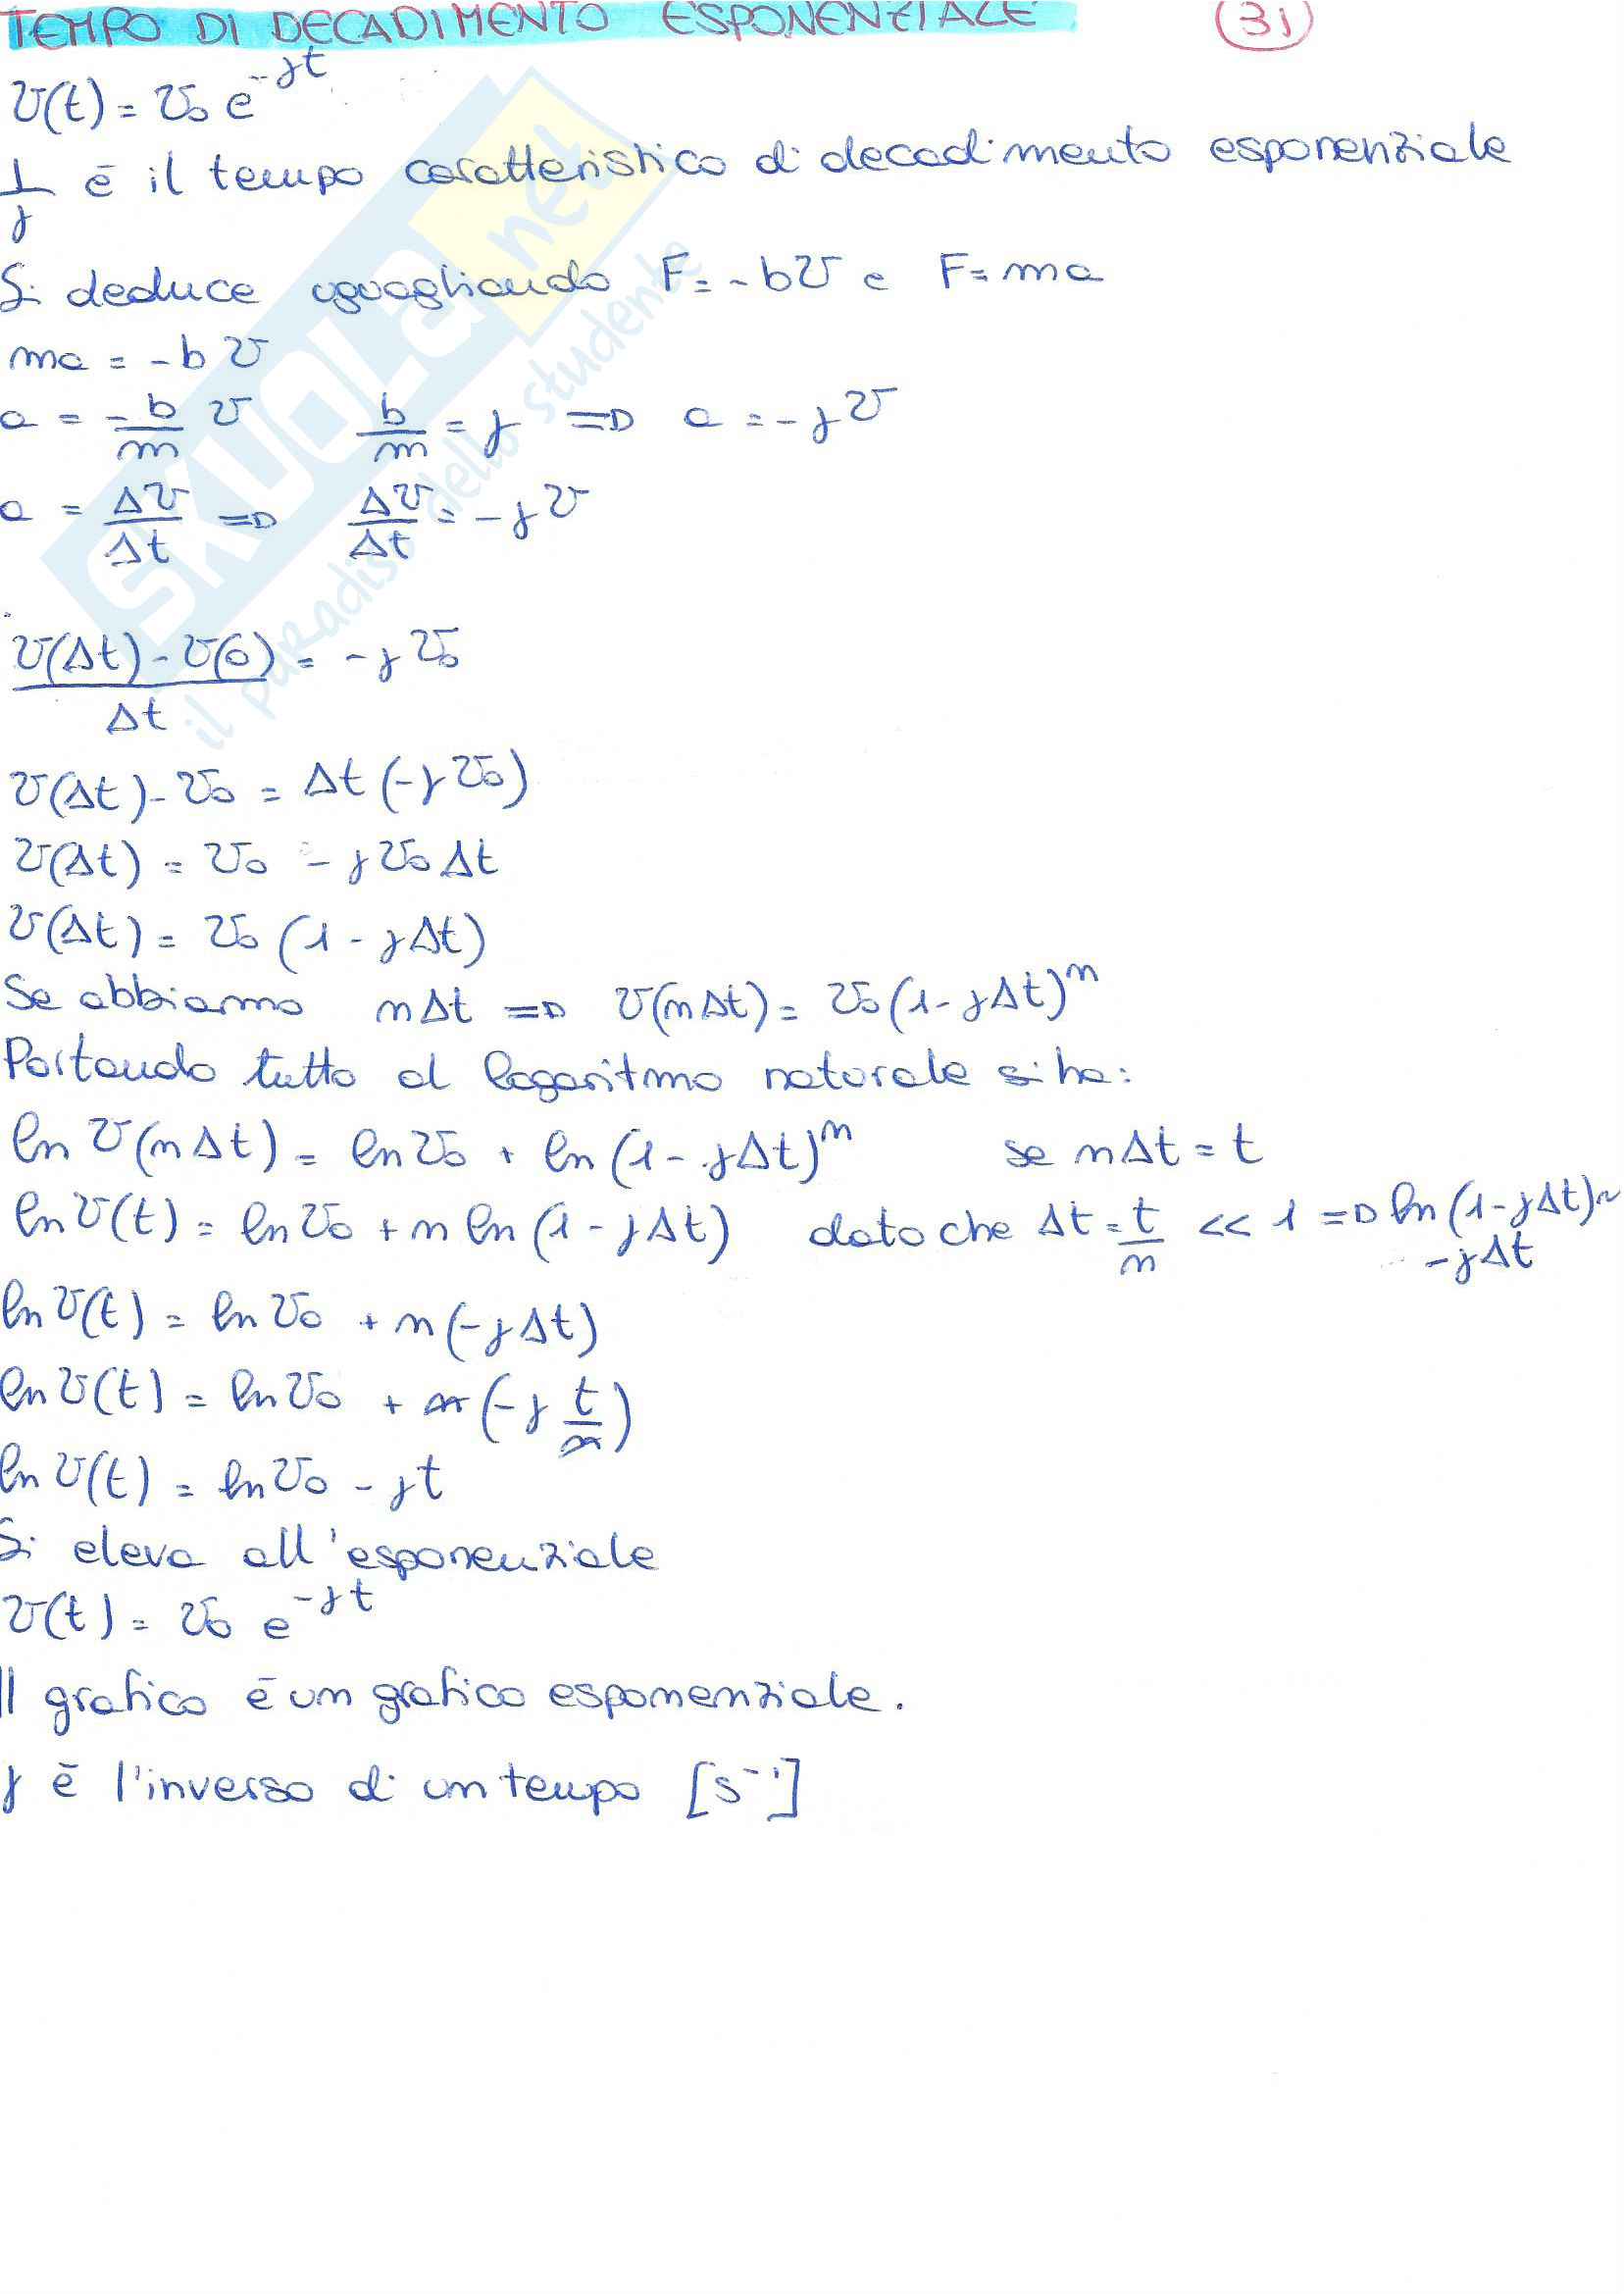 TEMPO DI DECADIMENTO ESPONENZIALE (31)
v(t) = v₀ e^-γt
1/γ è il tempo caratteristico di decadimento esponenziale
Si deduce uguagliando F = -bv e F = ma
ma = -b v
a = -b/m v b/m = γ => a = -γv
a = Δv/Δt => Δv/Δt = -γv
v(Δt) - v(0)/Δt = -γv₀
v(Δt) - v₀ = Δt(-γv₀)
v(Δt) = v₀ - γv₀Δt
v(Δt) = v₀ (1 - γΔt)
Se abbiamo nΔt => v(nΔt) = v₀(1-γΔt)^n
Portando tutto al logaritmo naturale si ha:
ln v(nΔt) = ln v₀ + ln(1-γΔt)^n se nΔt = t
ln v(t) = ln v₀ + n ln(1-γΔt) dato che Δt = t/n << 1 => ln(1-γΔt)~
-γΔt
ln v(t) = ln v₀ + n(-γΔt)
ln v(t) = ln v₀ + n(-γ t/n)
ln v(t) = ln v₀ - γt
Si eleva all'esponenziale
v(t) = v₀ e^-γt
Il grafico è un grafico esponenziale.
γ è l'inverso di un tempo [s⁻¹]
SKUOLa.net
il paradiso dello studente